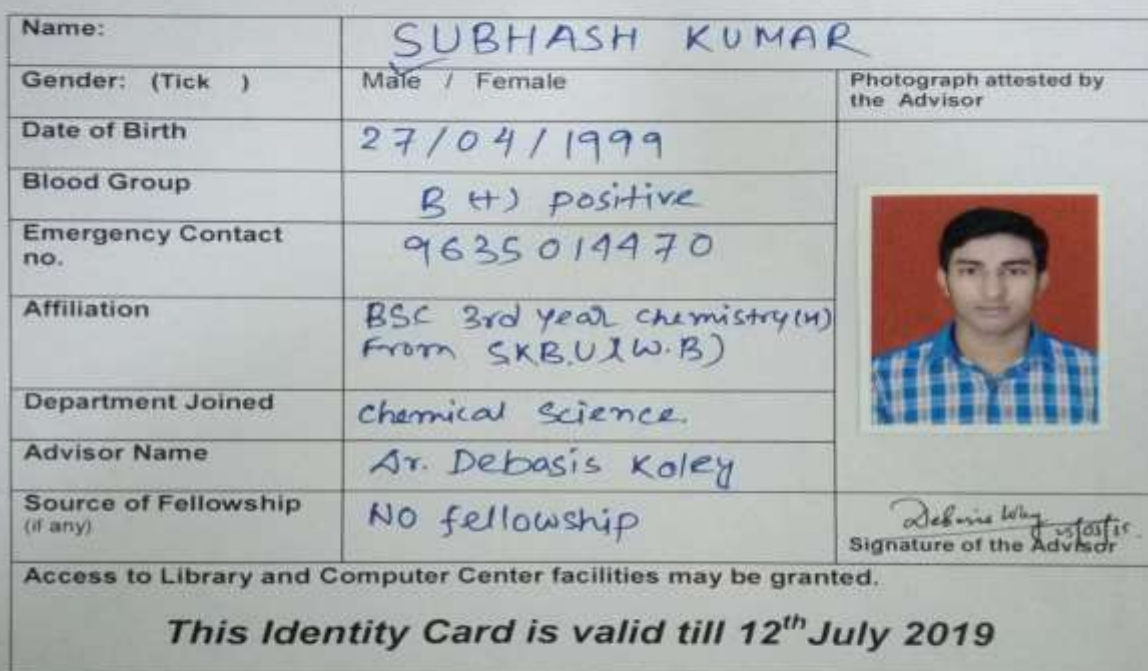 Name: SUBHASH KUMAR
Gender: (Tick ) Male / Female
Photograph attested by
the Advisor
Date of Birth 27/04/1999
Blood Group B (+) positive
Emergency Contact
no. 9635014470
Affiliation BSC 3rd year chemistry(H)
From SKB.U(W.B)
Department Joined Chemical Science.
Advisor Name Dr. Debasis Koley
Source of Fellowship
(if any) NO fellowship
Signature of the Advisor
Access to Library and Computer Center facilities may be granted.
This Identity Card is valid till 12th July 2019